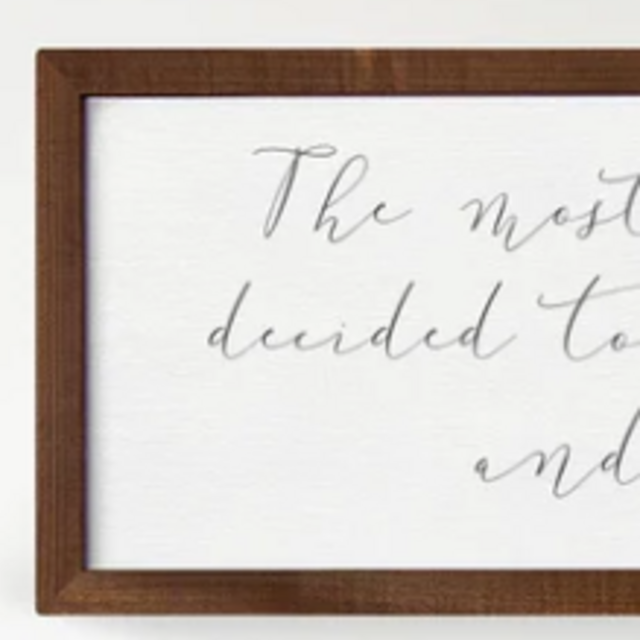 The most
decided to
and